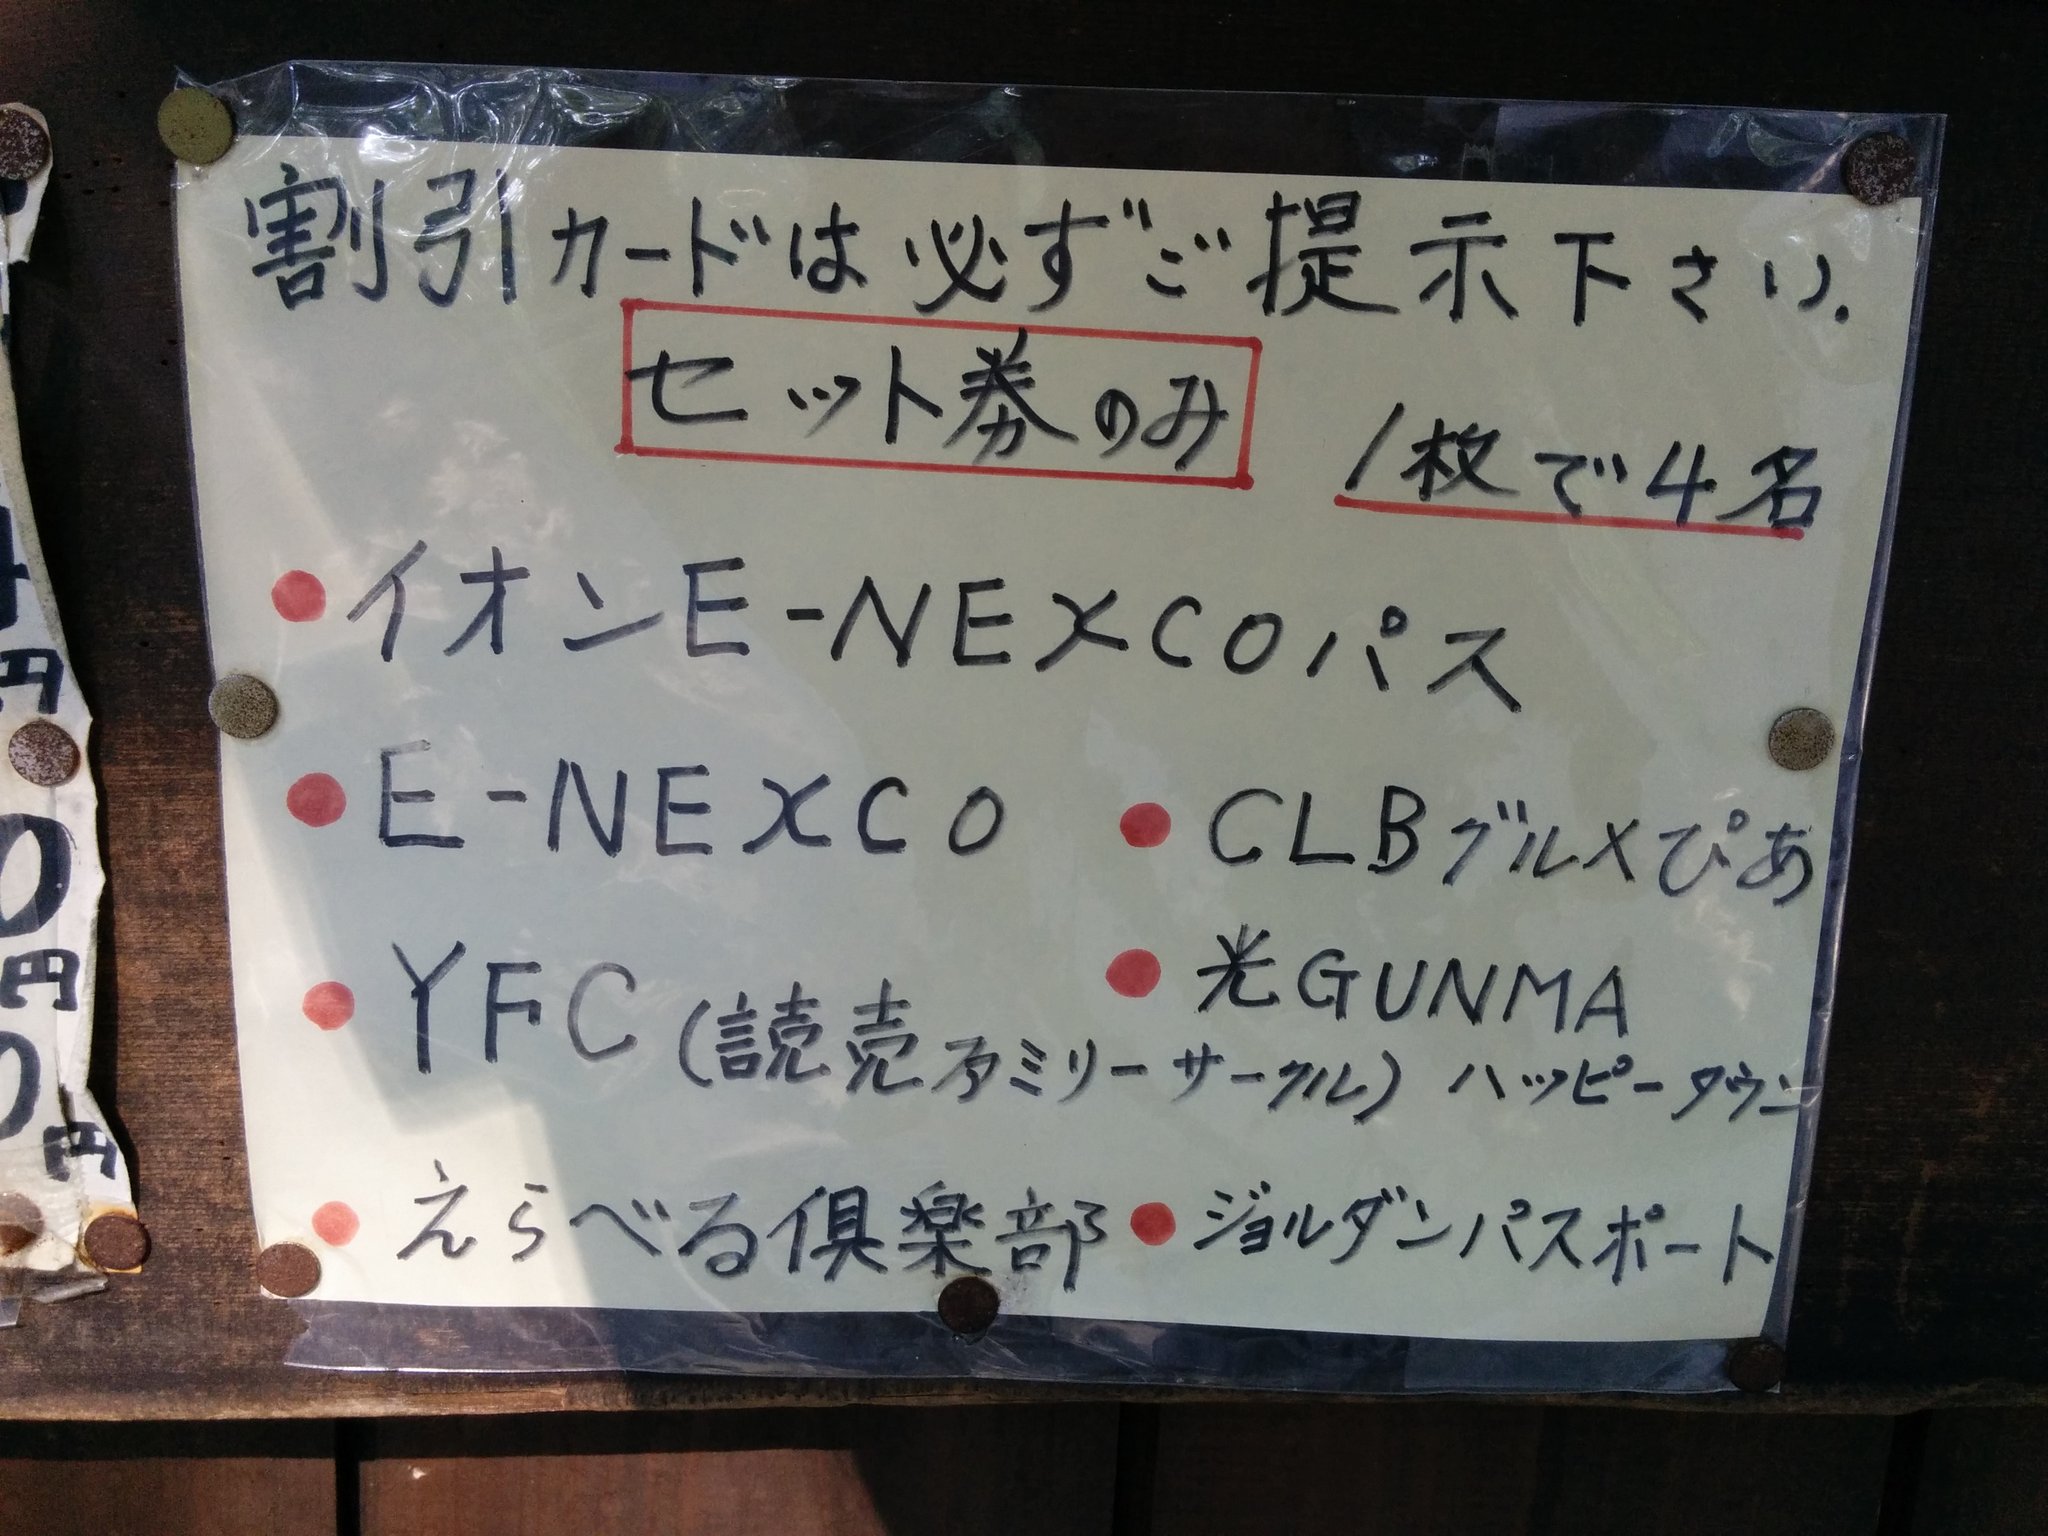 割引カードは必ずご提示下さい.
セット券のみ
1枚で4名
● イオンE-NEXCOパス
● E-NEXCO
● CLBグルメぴあ
● YFC(読売ファミリーサークル)
● 光GUNMA
ハッピータウン
● えらべる倶楽部
● ジョルダンパスポート
円
0
円
0
円